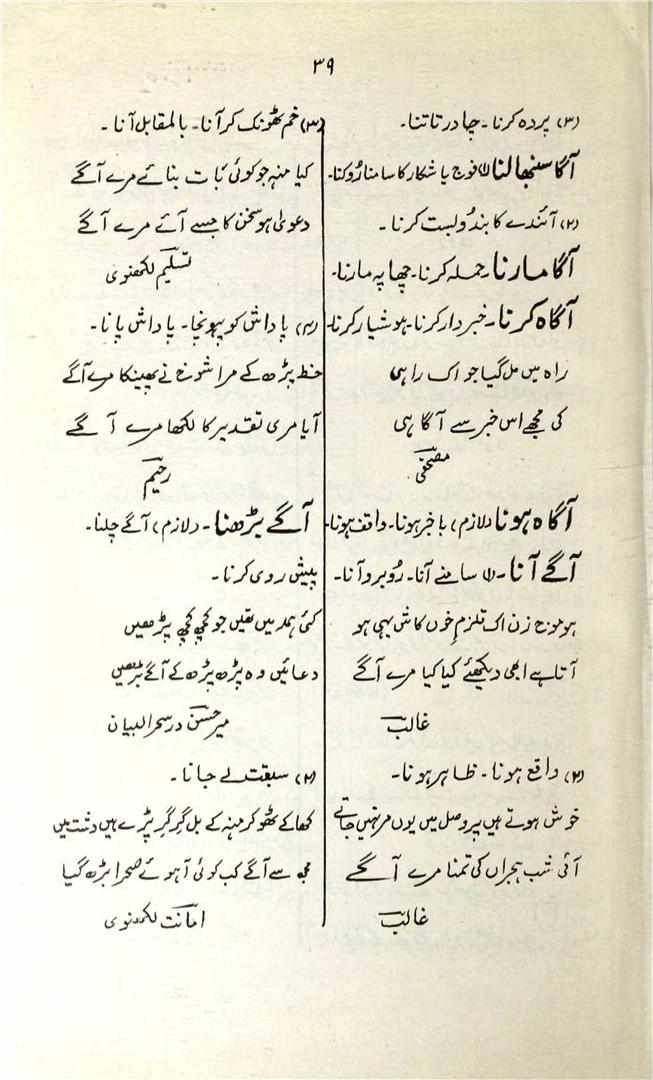 ۳۹
(۳) پردہ کرنا۔ چادر تاننا۔
آگا سنبھالنا (۱) فوج یا شکار کا سامنا روکنا۔
(۲) آئندے کا بندوبست کرنا۔
آگا مارنا۔ حملہ کرنا۔ چھاپہ مارنا۔
آگاہ کرنا۔ خبردار کرنا۔ ہوشیار کرنا۔
راہ میں مل گیا جو اک راہی
کی مجھے اس خبر سے آگاہی
مصحفی
آگاہ ہونا (لازم) باخبر ہونا۔ واقف ہونا۔
آگے آنا۔ (۱) سامنے آنا۔ رُوبرو آنا۔
ہو موج زن اک قلزمِ خُوں کاش یہی ہو
آتا ہے ابھی دیکھئے کیا کیا مرے آگے
غالب
(۲) واقع ہونا۔ ظاہر ہونا۔
خوش ہوتے ہیں پر وصل میں یوں مر نہیں جاتے
آئی شب ہجراں کی تمنا مرے آگے
غالب
(۳) خم ٹھونک کر آنا۔ بالمقابل آنا۔
کیا منہ جو کوئی بات بنائے مرے آگے
دعویٰ ہو سخن کا جسے آئے مرے آگے
تسلیم لکھنوی
(۴) پاداش کو پہونچنا۔ پاداش پانا۔
خط پڑھ کے مرا شوخ نے پھینکا مرے آگے
آیا مری تقدیر کا لکھا مرے آگے
رحیم
آگے بڑھنا۔ (لازم) آگے چلنا۔
پیش روی کرنا۔
کئی ہمدمیں تھیں جو کچھ کچھ پڑھیں
دعائیں وہ پڑھ پڑھ کے آگے بڑھیں
میر حسن در سحر البیان
(۲) سبقت لے جانا۔
کھا کے ٹھوکر منہ کے بل گر گر پڑے ہیں دشت میں
مجھ سے آگے کب کوئی آہوئے صحرا بڑھ گیا
امانت لکھنوی